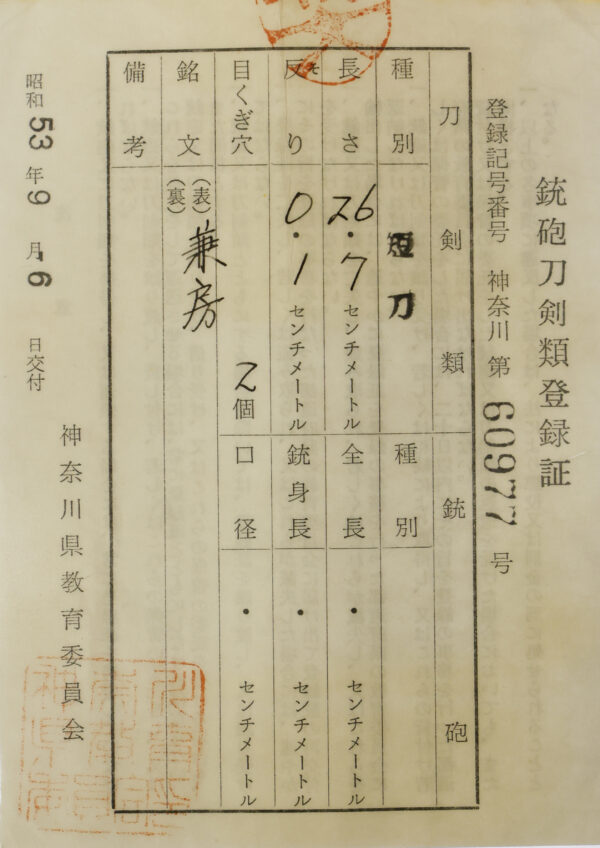 銃砲刀剣類登録証
登録記号番号 神奈川 第 60977 号
刀剣類 銃砲
種別 短刀 種別
長さ 26.7センチメートル 全長 ・センチメートル
反り そ 0.1センチメートル 銃身長 ・センチメートル
目くぎ穴 2個 口径 ・センチメートル
銘文 (表) 兼房
(裏)
備考
昭和53年9月-6日交付
神奈川県教育委員会